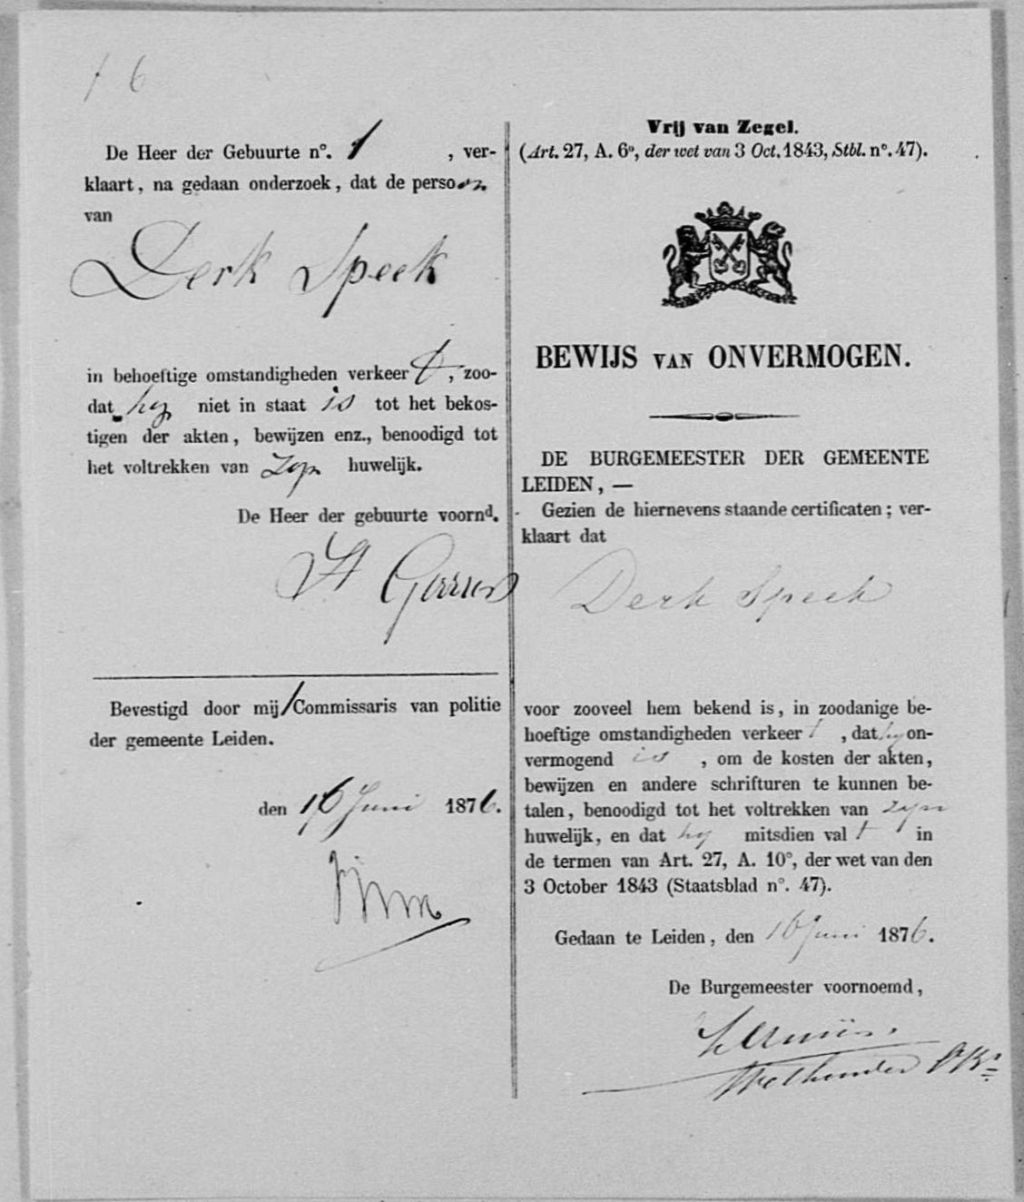 6
De Heer der Gebuurte n°. 1 , ver-
klaart, na gedaan onderzoek, dat de persoon
van
Derk Speek
in behoeftige omstandigheden verkeert, zoo-
dat hy niet in staat is tot het bekos-
tigen der akten, bewijzen enz., benoodigd tot
het voltrekken van zyn huwelijk.
De Heer der gebuurte voornd.
Bevestigd door mij Commissaris van politie
der gemeente Leiden.
den 16 Juni 1876.
Vrij van Zegel.
(Art. 27, A. 6°, der wet van 3 Oct. 1843, Stbl. n°. 47).
BEWIJS VAN ONVERMOGEN.
DE BURGEMEESTER DER GEMEENTE
LEIDEN, —
Gezien de hiernevens staande certificaten; ver-
klaart dat
Derk Speek
voor zooveel hem bekend is, in zoodanige be-
hoeftige omstandigheden verkeert , dat hy on-
vermogend is , om de kosten der akten,
bewijzen en andere schrifturen te kunnen be-
talen, benoodigd tot het voltrekken van zyn
huwelijk, en dat hy mitsdien valt in
de termen van Art. 27, A. 10°, der wet van den
3 October 1843 (Staatsblad n°. 47).
Gedaan te Leiden, den 16 Juni 1876.
De Burgemeester voornoemd,
Wethouder